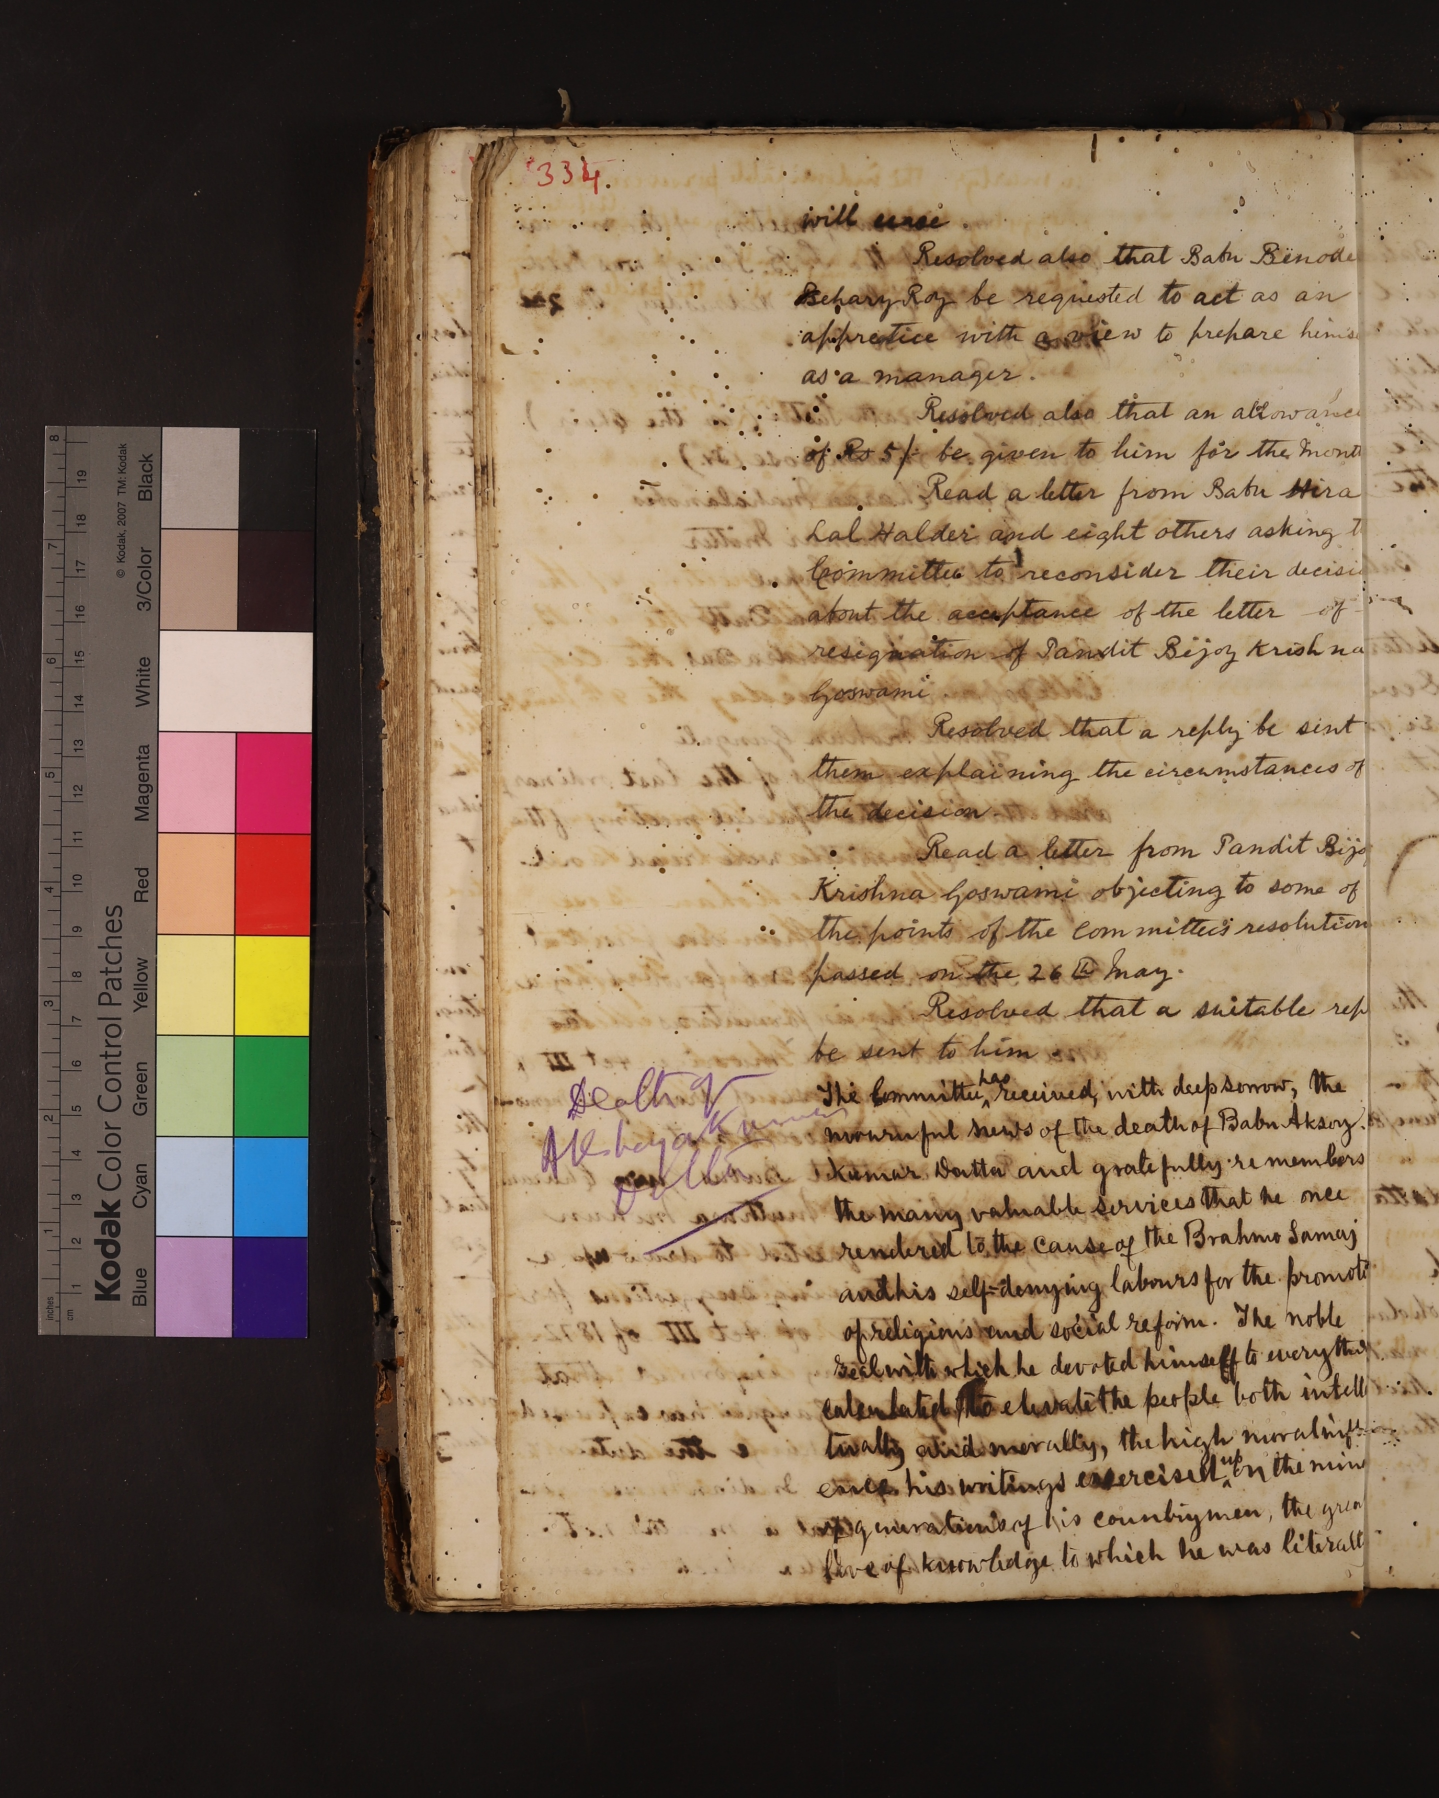 334.
will cease.
Resolved also that Babu Benode
Behary Roy be requested to act as an
apprentice with a view to prepare himse
as a manager.
Resolved also that an allowance
of Rs 5/- be given to him for the Month
Read a letter from Babu Hira
Lal Halder and eight others asking t
Committee to reconsider their decisi
about the acceptance of the letter of
resignation of Pandit Bijoy Krishna
Goswami
Resolved that a reply be sent
them explaining the circumstances of
the decision.
Read a letter from Pandit Bijo
Krishna Goswami objecting to some of
the points of the Committee's resolution
passed on the 26th May.
Resolved that a suitable rep
be sent to him.
Death of
Akshaya Kumar
Dutta
The Committee has received, with deep sorrow, the
mournful news of the death of Babu Aksoy
Kumar Dutta and gratefully remembers
the many valuable services that he once
rendered to the cause of the Brahmo Samaj
and his self-denying labours for the promoti
of religious and social reform. The noble
zeal with which he devoted himself to everythin
calculated to elevate the people both intell
tually and morally, the high moral infl
ence his writings exercised upon the min
of generations of his countrymen, the grea
love of knowledge to which he was literall
Kodak Color Control Patches
© Kodak, 2007 TM: Kodak
Blue Cyan Green Yellow Red Magenta White 3/Color Black
inches 1 2 3 4 5 6 7 8
cm 1 2 3 4 5 6 7 8 9 10 11 12 13 14 15 16 17 18 19